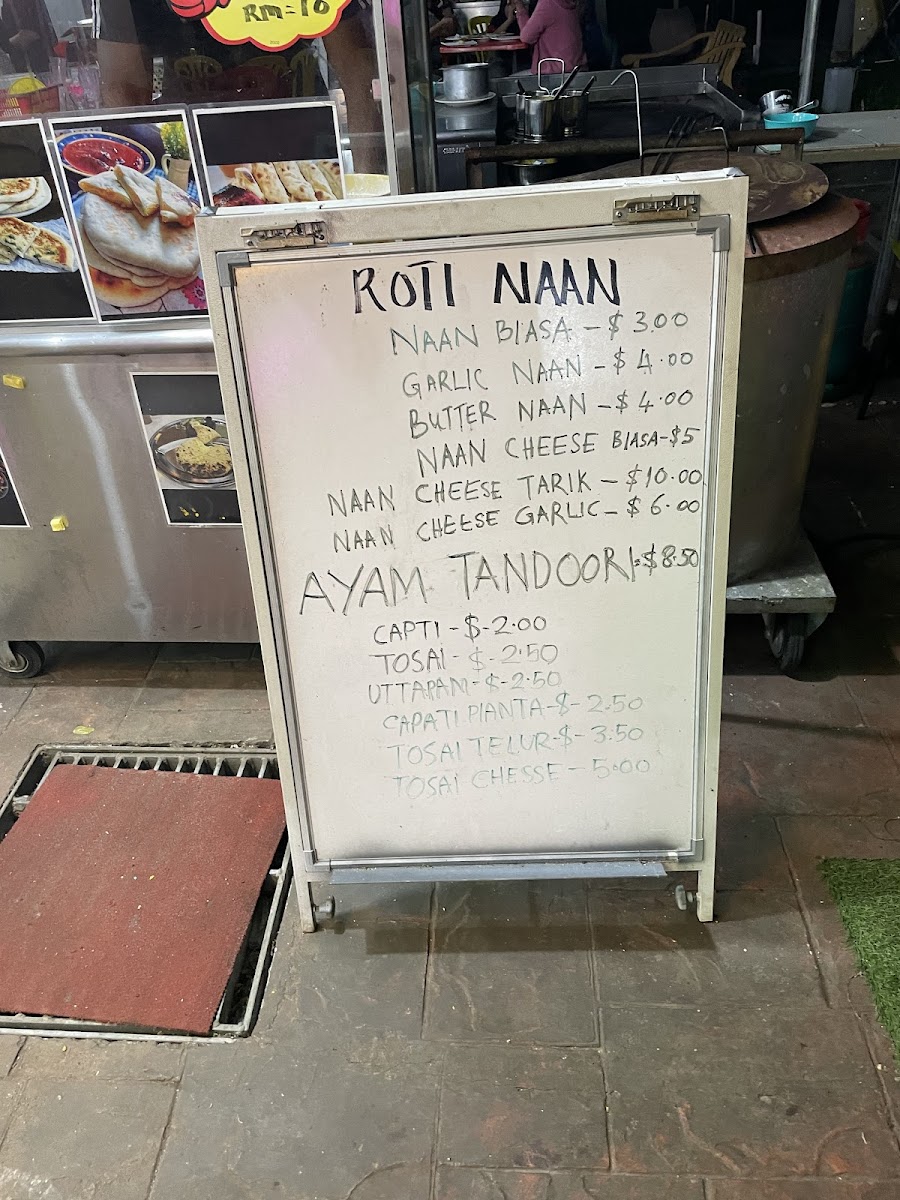 RM=10
ROTI NAAN
NAAN BIASA - $ 3.00
GARLIC NAAN - $ 4.00
BUTTER NAAN - $ 4.00
NAAN CHEESE BIASA - $5
NAAN CHEESE TARIK - $10.00
NAAN CHEESE GARLIC - $ 6.00
AYAM TANDOORI = $8.50
CAPTI - $ - 2.00
TOSAI - $ - 2.50
UTTAPAM - $ - 2.50
CAPATI PIANTA - $ - 2.50
TOSAI TELUR - $ - 3.50
TOSAI CHESSE - 5.00